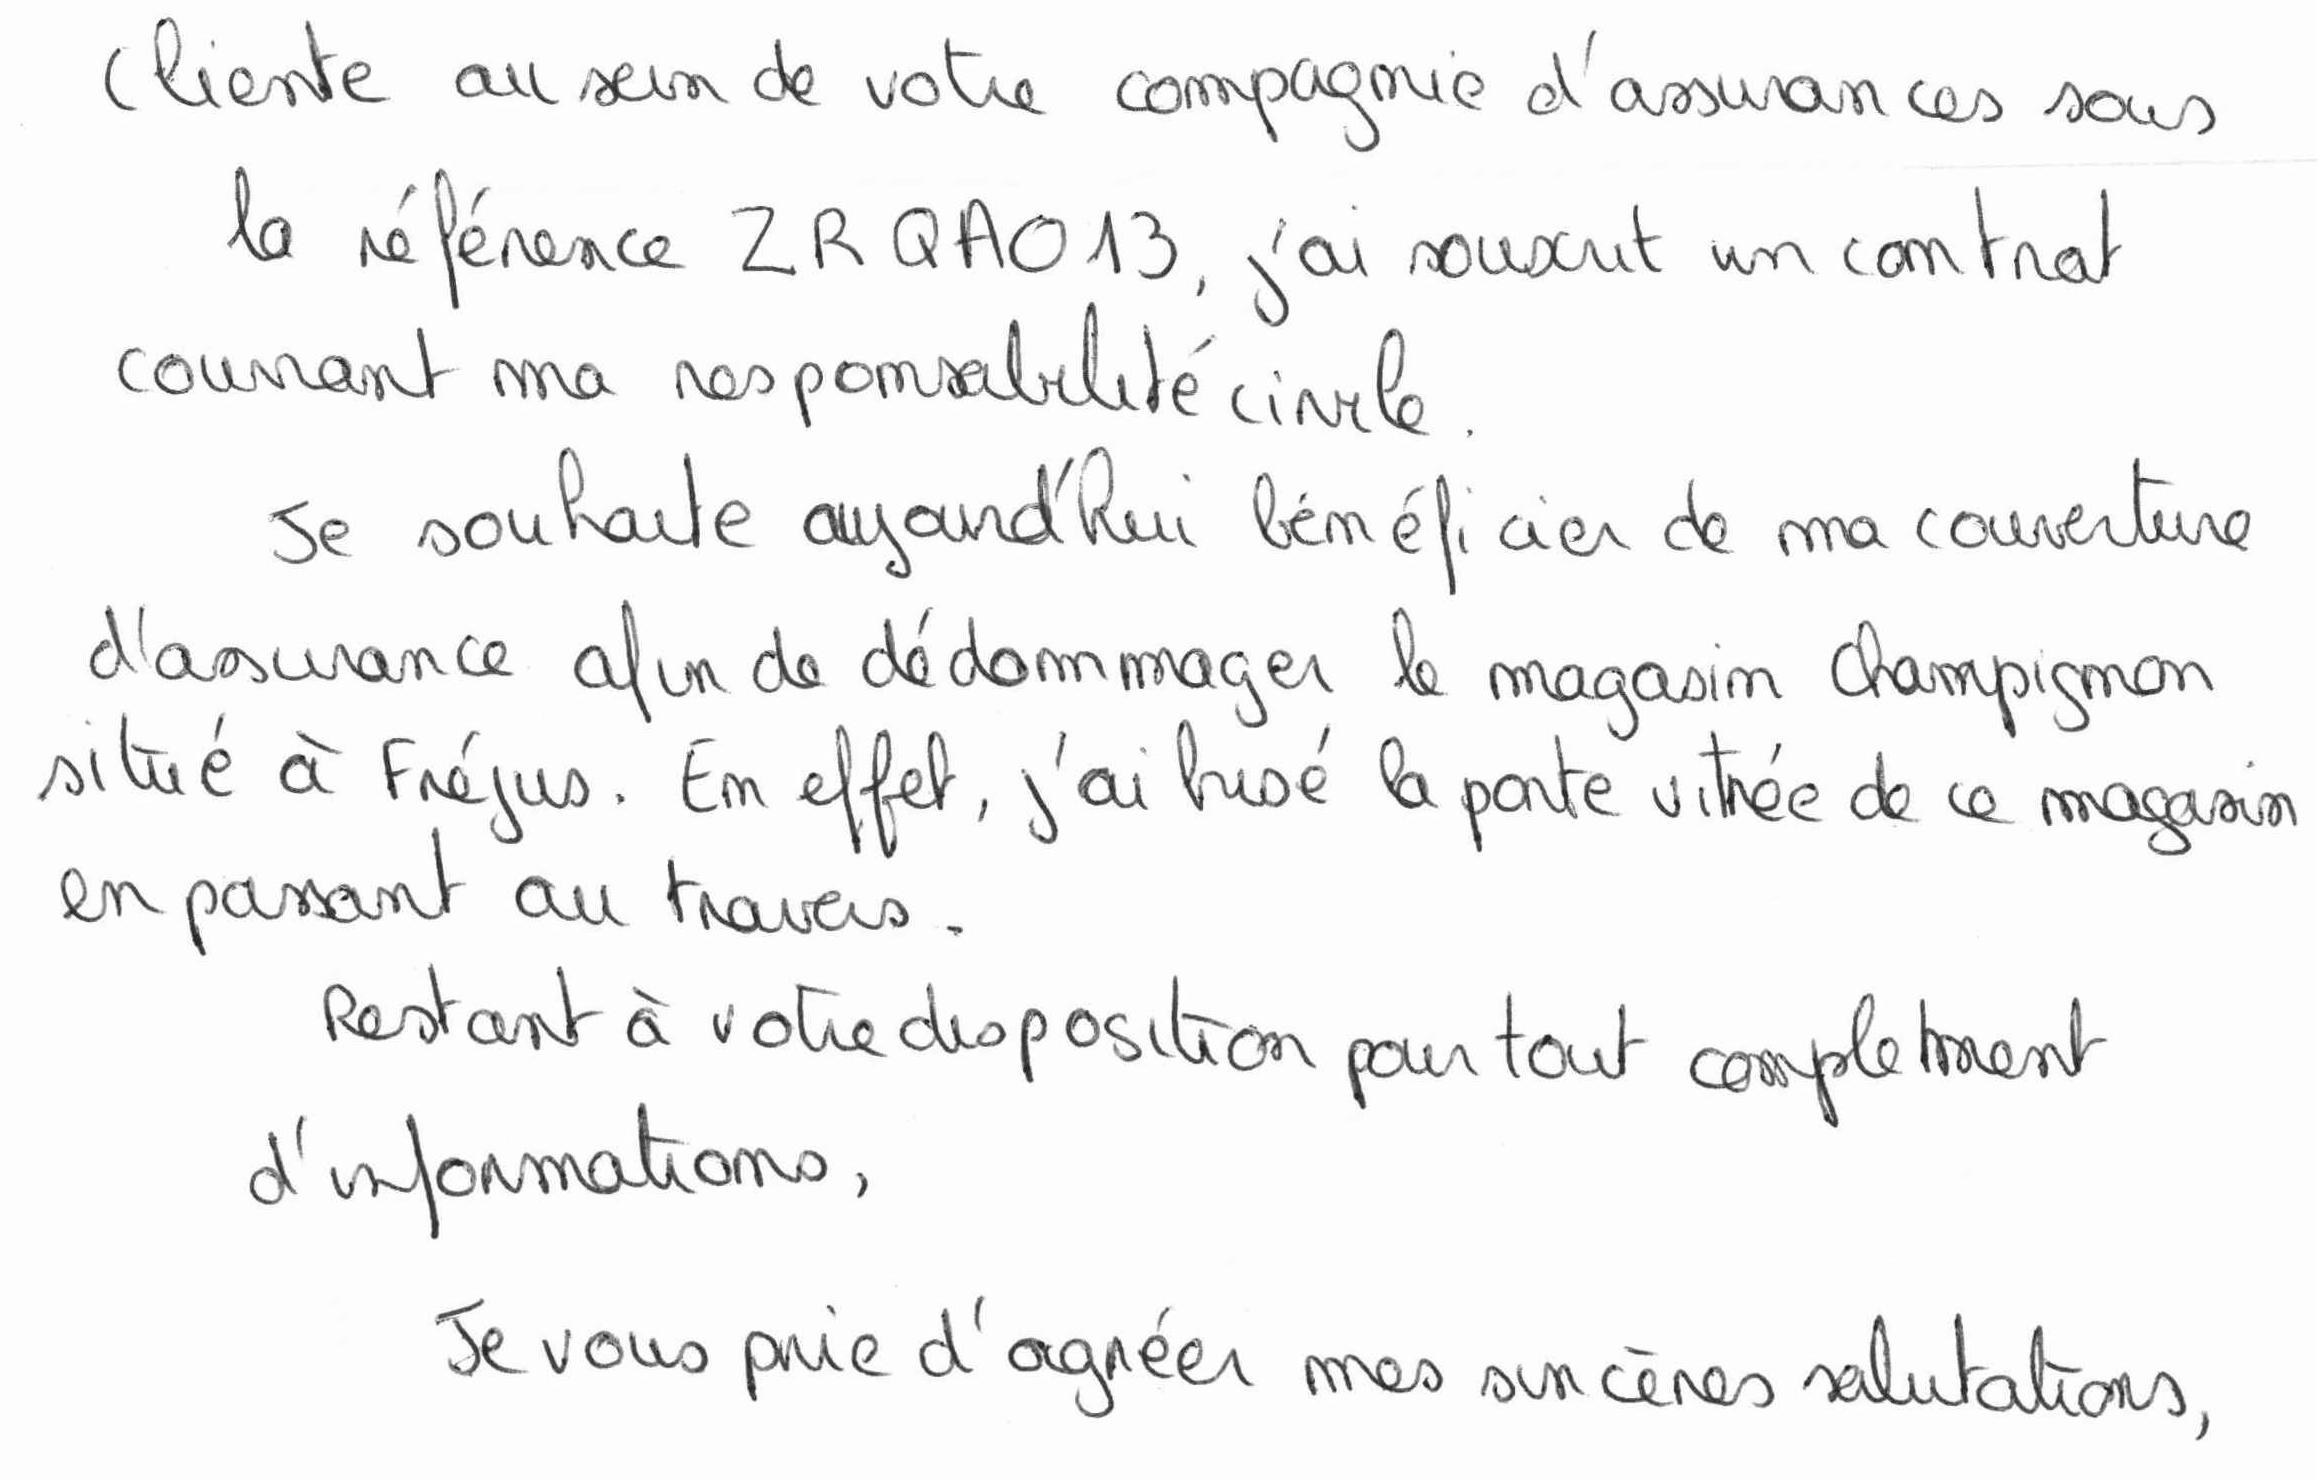 Cliente au sein de votre compagnie d'assurances sous
la référence ZRQAO13, j'ai souscrit un contrat
couvrant ma responsabilité civile.
Je souhaite aujourd'hui bénéficier de ma couverture
d'assurance afin de dédommager le magasin Champignon
situé à Fréjus. En effet, j'ai brisé la porte vitrée de ce magasin
en passant au travers.
Restant à votre disposition pour tout completment
d'informations,
Je vous prie d'agréer mes sincères salutations,